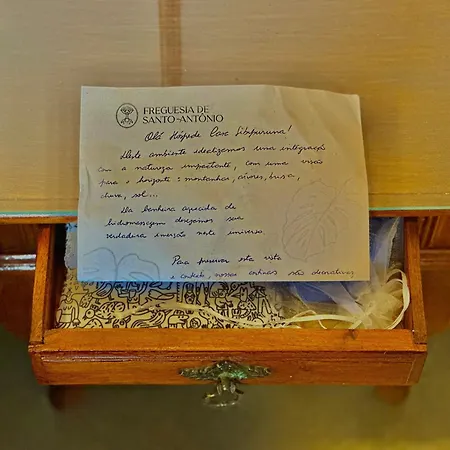 FREGUESIA DE
SANTO-ANTÔNIO
Olá Hóspede Casa Sibipuruna!
Neste ambiente idealizamos uma integração
com a natureza impactante, com uma visão
para o horizonte: montanhas, árvores, brisa,
chuva, sol...
Na banheira aquecida de
hidromassagem desejamos sua
verdadeira imersão neste universo.
Para preservar esta vista
e contato, nossas cortinas são decorativas